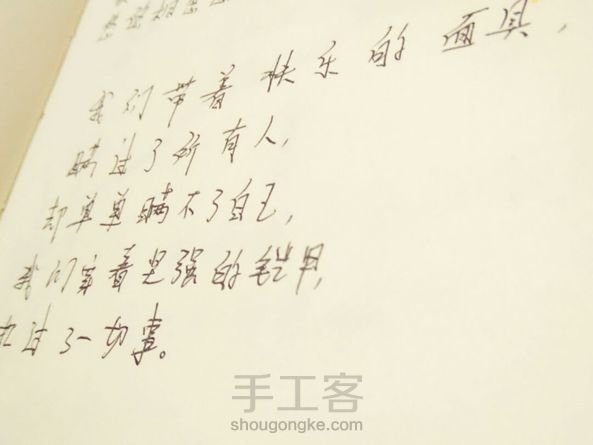 我们带着快乐的面具，
瞒过了所有人，
却单单瞒不了自己，
我们穿着坚强的铠甲，
过了一切事。
手工客
shougongke.com